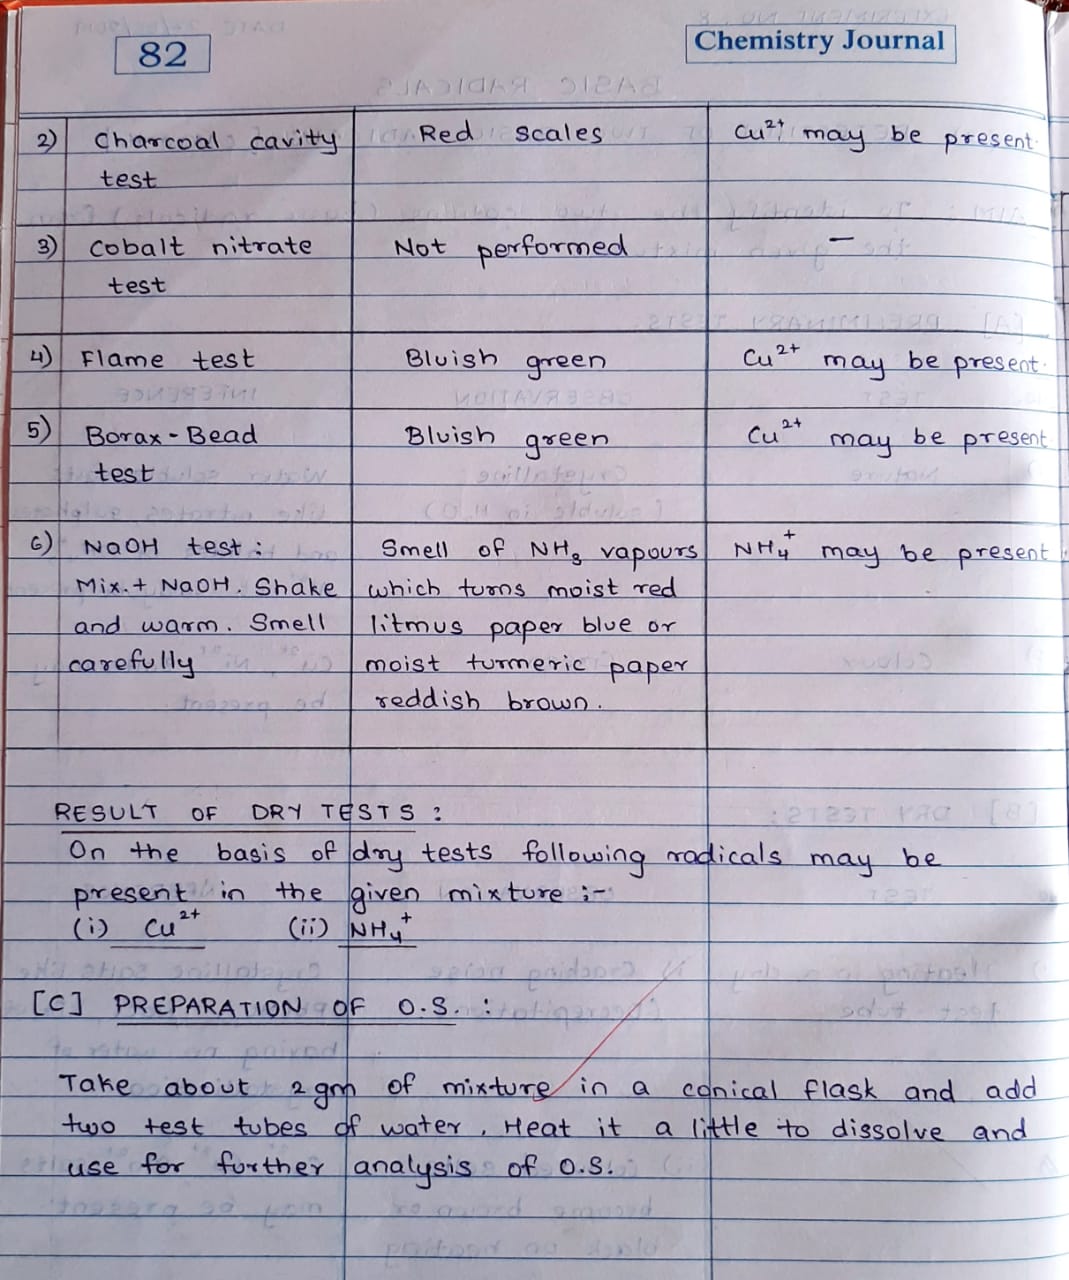 82
Chemistry Journal
2) Charcoal cavity Red scales Cu²⁺ may be present.
test
3) Cobalt nitrate Not performed —
test
4) Flame test Bluish green Cu²⁺ may be present.
5) Borax-Bead Bluish green Cu²⁺ may be present
test
6) NaOH test : Smell of NH₃ vapours NH₄⁺ may be present
Mix.+ NaOH. Shake which turns moist red
and warm. Smell litmus paper blue or
carefully moist turmeric paper
reddish brown.
RESULT OF DRY TESTS :
On the basis of dry tests following radicals may be
present in the given mixture :-
(i) Cu²⁺ (ii) NH₄⁺
[C] PREPARATION OF O.S. :
Take about 2 gm of mixture in a conical flask and add
two test tubes of water. Heat it a little to dissolve and
use for further analysis of O.S.